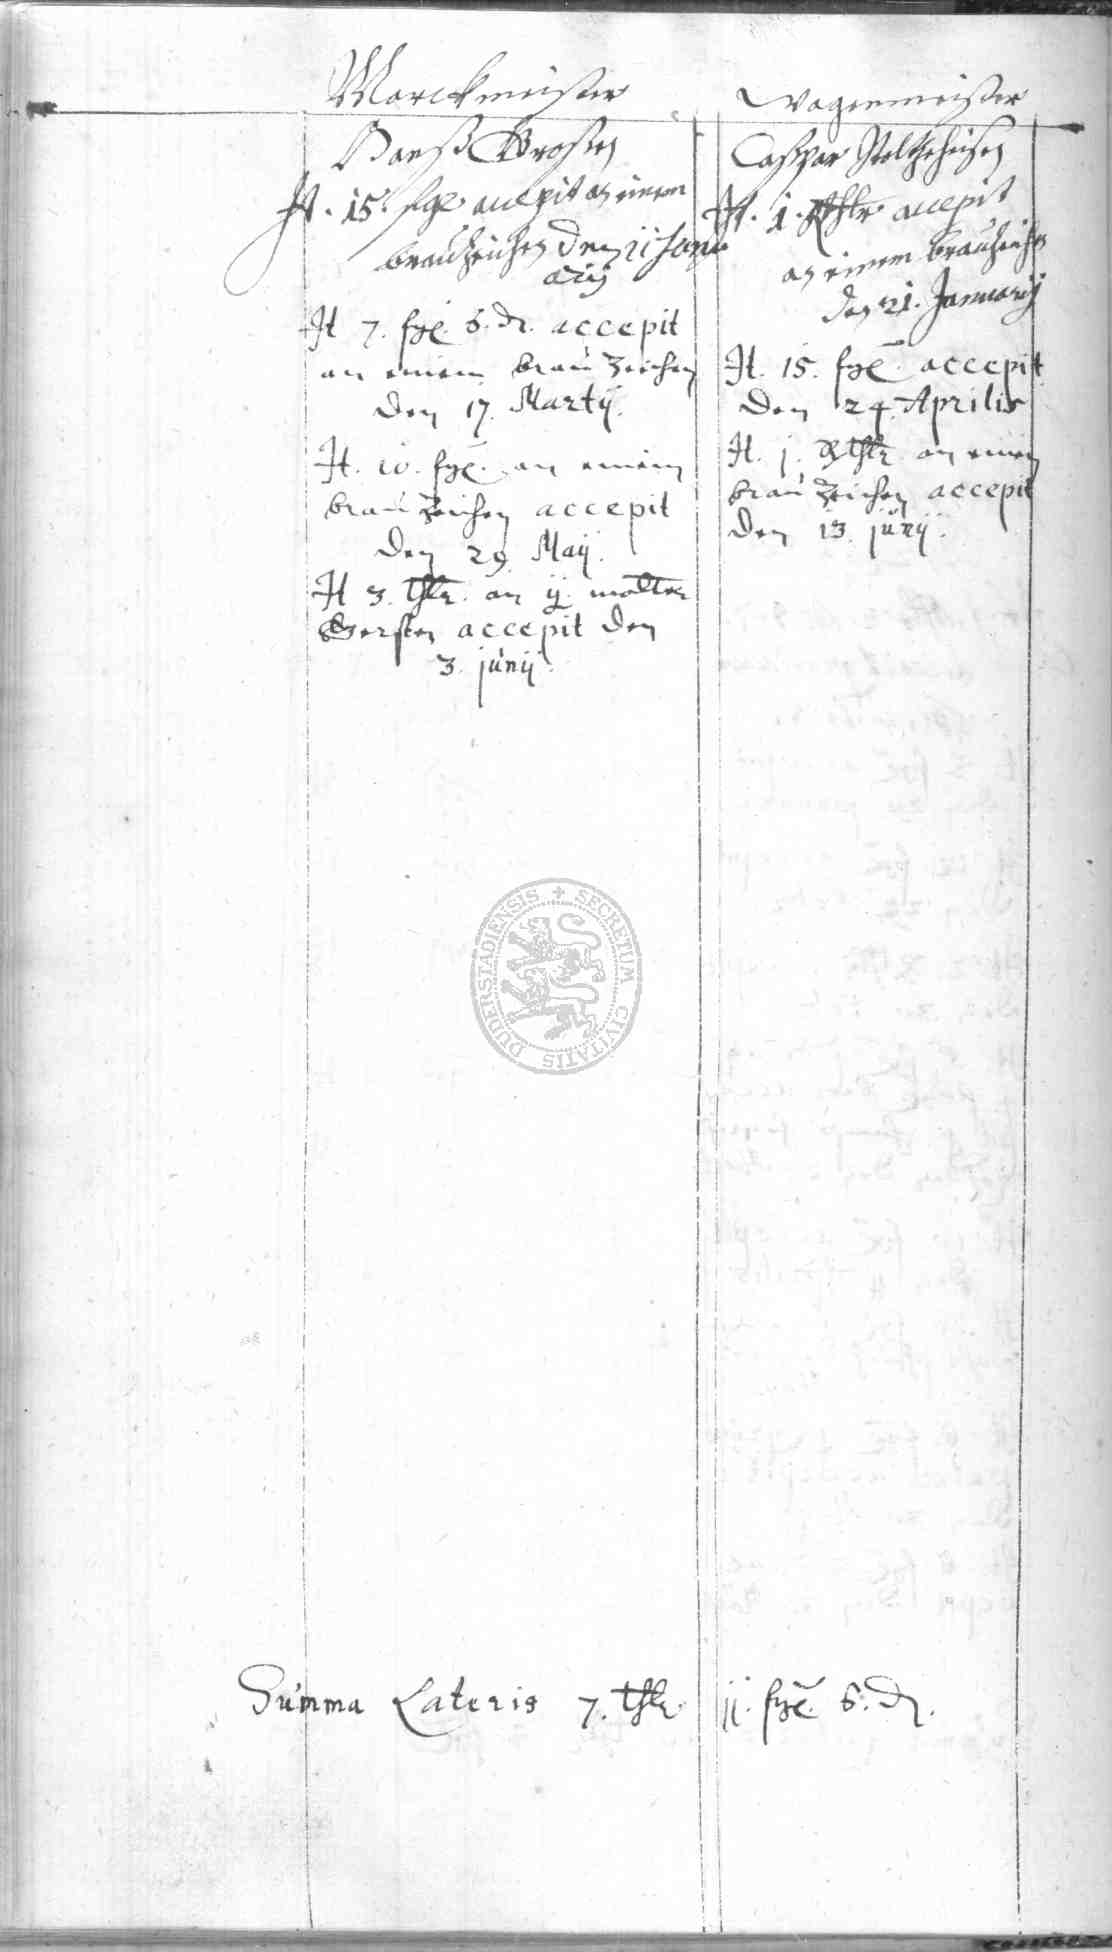 Marckmeister
Hanß Großen
It. 15. fgl accepit an einem
brauzeichen den 21 Janu
arij
It 7. fgl. 6. d. accepit
an einem brau zeichen
den 17. Martij.
It. 10. fgl. an einem
brau zeichen accepit
den 29. Maij.
It 3. thlr. an ij. malter
Gersten accepit den
3. junij.
Wagenmeister
Caspar
It. 1. Rthlr accepit
an einem brauzeichen
den 21. Januarij
It. 15. fgl. accepit
den 24. Aprilis
It. j. Rthlr. an einem
brau zeichen accepit
den 13. junij.
SECRETUM CIVITATIS DUDERSTADIENSIS
Summa Lateris 7. thlr. jj. fgl. 6. d.